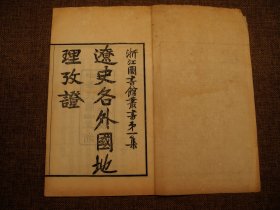 浙江圖書館叢書第一集
遼史各外國地
理攷證